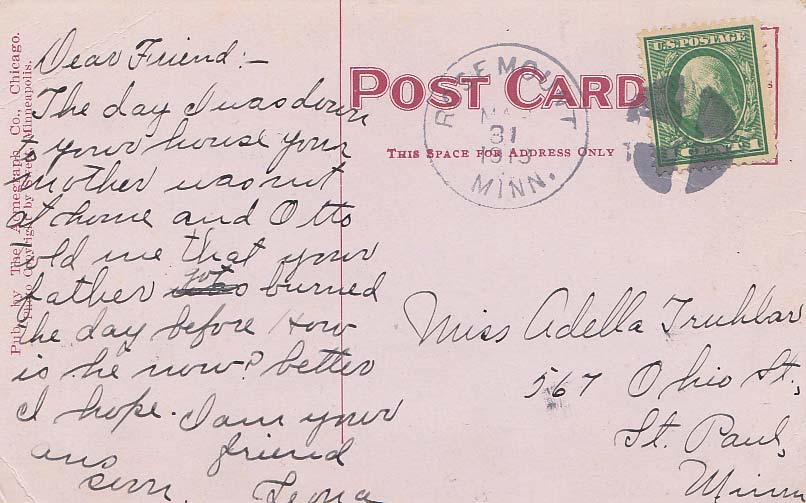 Dear Friend:-
The day I was down
to your house your
mother was not
at home and Otto
told me that your
father got burned
the day before How
is he now? better
I hope. I am your
ans friend
soon. Leona
Pub. by The Acmegraph Co., Chicago.
Photo Copyright by Sweet, Minneapolis.
POST CARD
THIS SPACE FOR ADDRESS ONLY
ROSEMOUNT
31
MINN.
U.S. POSTAGE
1 CENTS 1
Miss Adella Truhlar
567 Ohio St.,
St. Paul,
Minn